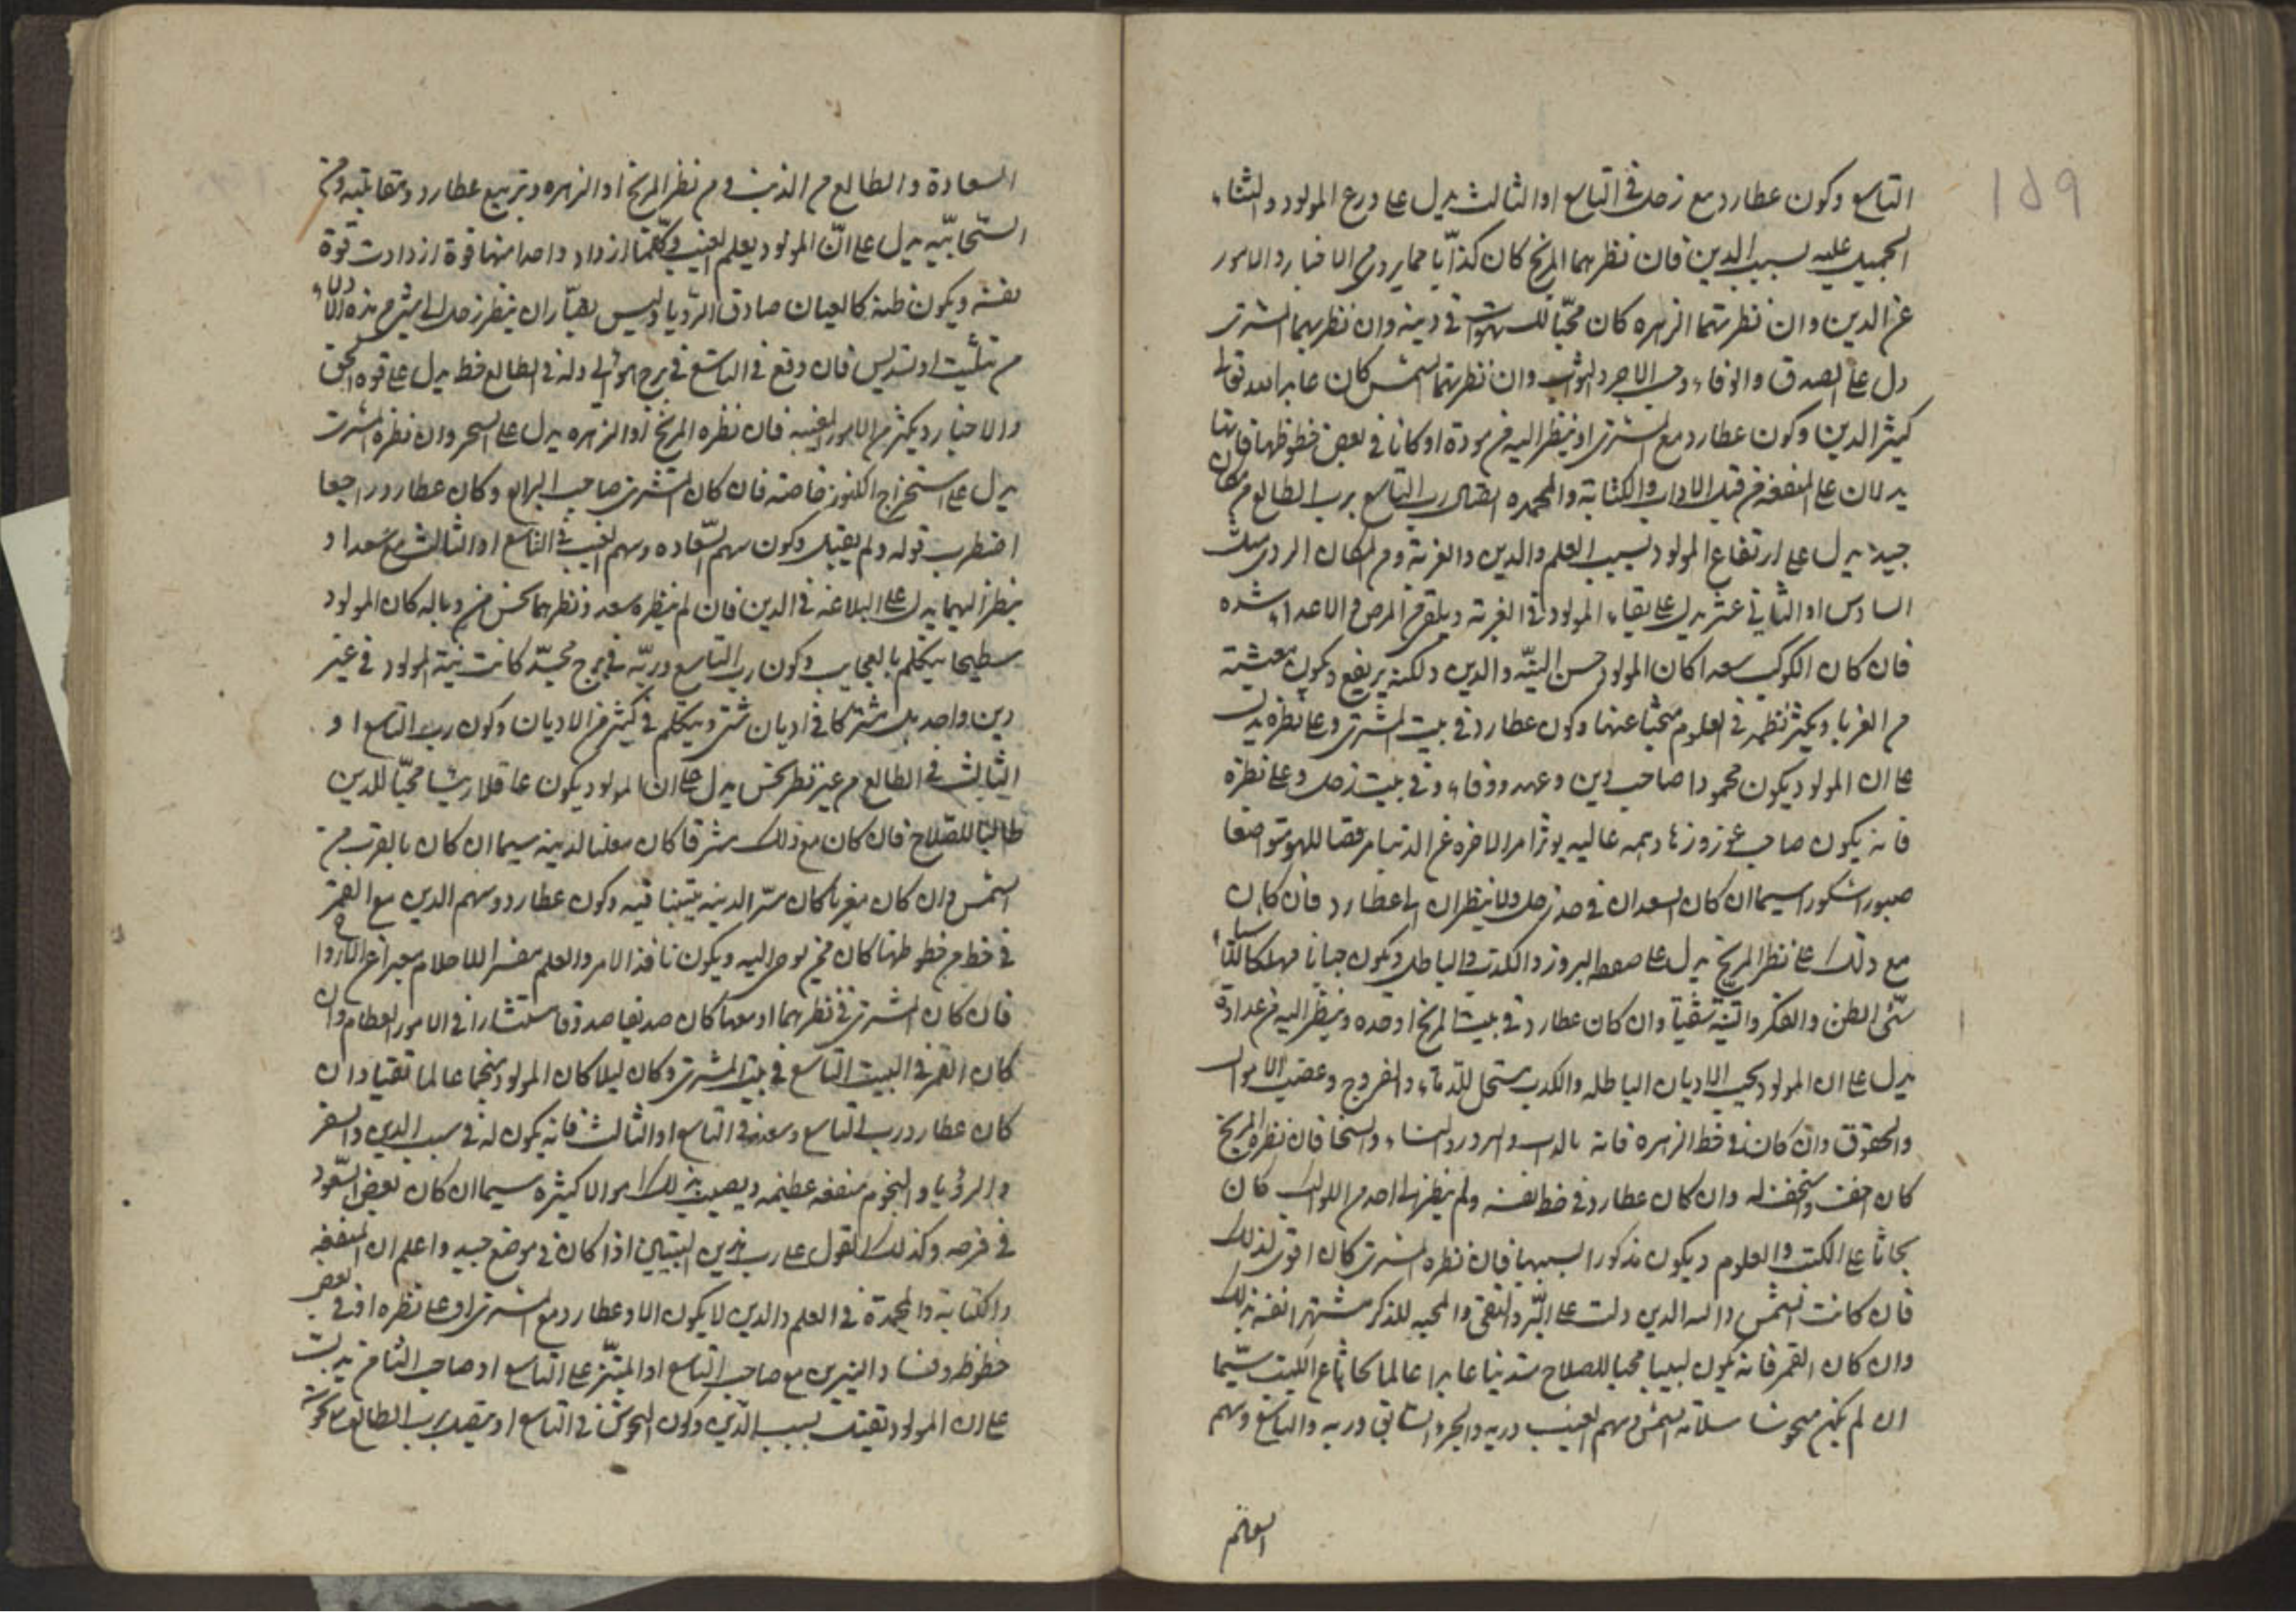 159
التاسع وكون عطارد مع زحل في التاسع او الثالث يدل على ورع المولود والثناء
الجميل عليه بسبب الدين فان نظرهما المريخ كان كذابا مما يروى من الاخبار والامور
عن الدين وان نظرتهما الزهره كان محبا للشهوات في دينه وان نظرهما المشترى
دل على الصدق والوفاء وحب الاجر والثواب وان نظرتهما الشمس كان عابدا لله تعالى
كثير الدين وكون عطارد مع المشترى او ينظر اليه من مودة او كانا في بعض حظوظهما فانهما
يدلان على المنفعة من قبل الاداب والكتابة والمحمده اتصال رب التاسع برب الطالع من مكان
جيد يدل على ارتفاع المولود بسبب العلم والدين والغربة ومن المكان الردى مثل
السادس او الثاني عشر يدل على بقاء المولود في الغربة ويلقى من المرض والاعداء شده
فان كان الكوكب سعدا كان المولود حسن النية والدين ولكنه يرتفع ويكون معيشته
من الغربا ويكثر نظره في العلوم متحيا عنها وكون عطارد في بيت المشترى وعلى نظره يدل
على ان المولود يكون محمودا صاحب دين وعهد ووفاء وفي بيت زحل وعلى نظره
فانه يكون صاحب عز وزهد وهمه عاليه يوثر امر الاخره عن الدنيا مرفضا للهو متواضعا
صبورا شكورا سيما ان كان السعدان في حد زحل ولا ينظران الى عطارد فان كان
مع ذلك على نظر المريخ يدل على والكذب والباطل ويكون جبانا مهلكا
سئ الظن والفكر والنية شقيا وان كان عطارد في بيت المريخ او حده وينظر اليه من عداوة
يدل على ان المولود يحب الاديان الباطله والكذب مستحل للدماء والفروج وغصب الاموال
والحقوق وان كان في حظ الزهره فانه والسرور والنساء والسخا فان نظره المريخ
كان اخف واسخف له وان كان عطارد في حظ نفسه ولم ينظر اليه احد من الكواكب كان
بحاثا على الكتب والعلوم ويكون مذكورا بسببها فان نظره المشترى كان اقوى لذلك
فان كانت الشمس داله الدين دلت على البر والتقى والمحبه للذكر مشتهرا نفسه بذلك
وان كان القمر فانه يكون لبيبا محبا للصلاح متدينا عابدا عالما بحاثا على الكتب سيما
ان لم يكن منحوسا الشمس وسهم الغيب وربه والجزء السابق وربه والتاسع وسهم
السعادة
السعادة والطالع من نظر المريخ او الزهره وتربيع عطارد ومقابلته ومن
السحابيه يدل على ان المولود يعلم الغيب وكلما ازداد واحدا منها قوة ازدادت قوة
نفسه ويكون ظنه كالعيان صادق الرؤيا وليس بضار ان ينظر زحل الى شئ من هذه الادلاء
من تثليث او تسديس فان وقع في التاسع في برج هوائي وله في الطالع حظ يدل على قوة الحق
والاخبار بكثير من الامور الغيبيه فان نظره المريخ او الزهره يدل على السحر وان نظره المشترى
يدل على استخراج الكنوز خاصة فان كان المشترى صاحب الرابع وكان عطارد راجعا
اضطرب قوله ولم يقبل وكون سهم السعاده وسهم الغيب في التاسع او الثالث مع سعد او
ينظر اليهما يدل على البلاغة في الدين فان لم ينظره سعد ونظرهما نحس من وباله كان المولود
سطيحا يتكلم بالعجايب وكون رب التاسع وربه في برج مجسد كانت نية المولود في غير
دين واحد بل مشتركا في اديان شتى ويتكلم في كثير من الاديان وكون رب التاسع او
الثالث في الطالع من غير نظر نحس يدل على ان المولود يكون عاقلا رئيسا محبا للدين
طالبا للصلاح فان كان مع ذلك مشرقا كان معلنا لدينه سيما ان كان بالقرب من
الشمس وان كان مغربا كان سر الدينه فيه وكون عطارد وسهم الدين مع القمر
في حظ من حظوظهما كان ممن يوحى اليه ويكون نافذ الامر والعلم مفسرا للاحلام معبرا عن
فان كان المشترى في نظرهما او معهما كان صديقا صدوقا مستشارا في الامور العظام وان
كان القمر في البيت التاسع في بيت المشترى وكان ليلا كان المولود منجما عالما تقيا وان
كان عطارد رب التاسع وسعد في التاسع او الثالث فانه يكون له في سبب الدين والسفر
والرؤيا والنجوم منفعه عظيمه ويصيب بذلك اموالا كثيره سيما ان كان بعض السعود
في فرحه وكذلك القول على رب هذين البيتين اذا كان في موضع جيد واعلم ان المنفعه
والكتابة والمحمدة في العلم والدين لا يكون الا وعطارد مع المشترى او على نظره او في بعض
حظوظه وفساد النيرين مع صاحب التاسع او المبتز على التاسع او صاحب الثامن يدل
على ان المولود يقتل بسبب الدين وكون النحوس في التاسع او يتصل برب الطالع